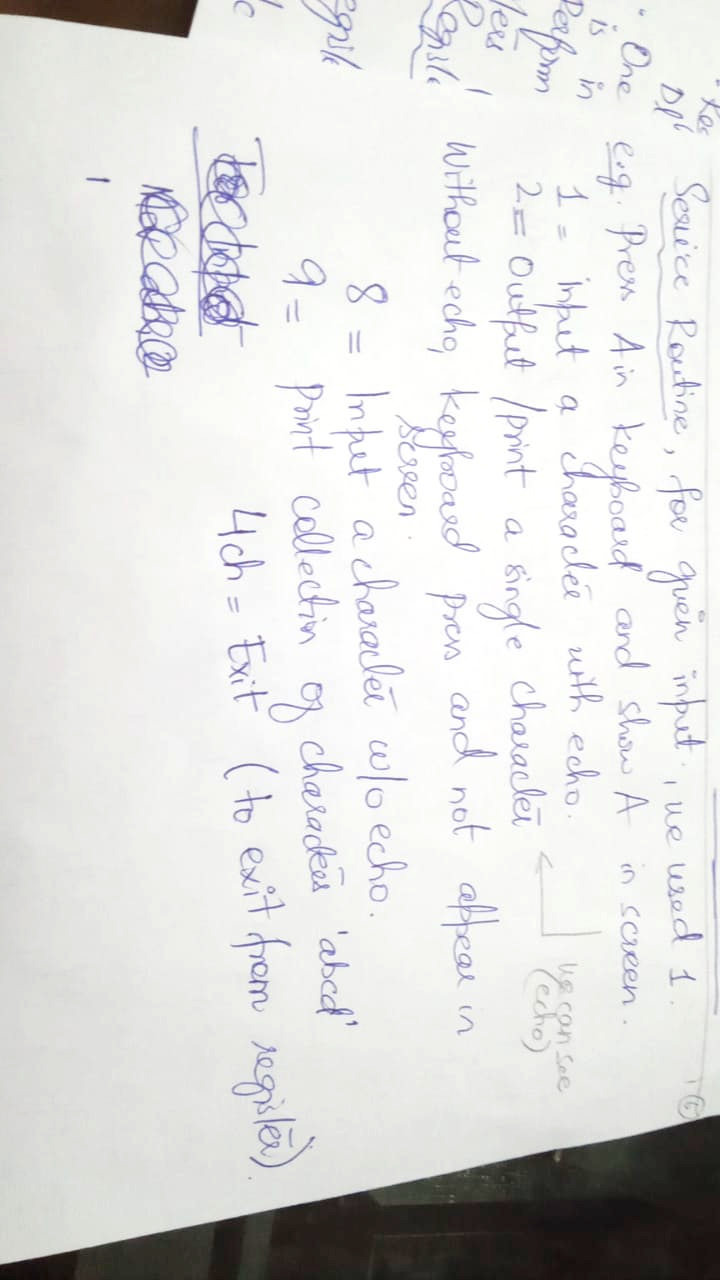 Service Routine, for given input, we used 1.
e.g. Press A in keyboard and show A in screen.
1 = input a character with echo.
2 = output /print a single character
we can see
(echo)
Without echo, keyboard press and not appear in
screen.
8 = Input a character w/o echo.
9 = print collection of characters 'abcd'
4ch = Exit (to exit from register).
One
is in
Perform